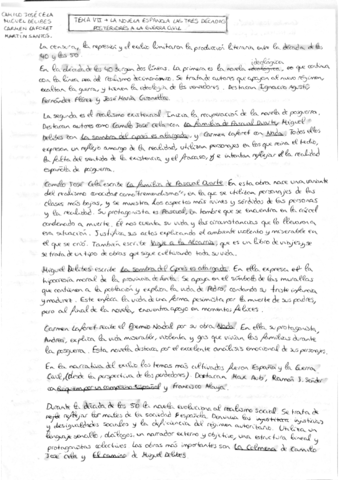 CAMILO JOSÉ CELA
MIGUEL DELIBES
CARMEN LAFORET
MARTÍN SANTOS.
TEMA VII → LA NOVELA ESPAÑOLA LAS TRES DÉCADAS
POSTERIORES A LA GUERRA CIVIL
La censura, la represión y el exilio limitaron la producción literaria entre la década de los
40 y los 50
En la década de los 40 surgen dos líneas. La primera es la novela ideológica, en que continúa
con la línea del realismo decimonónico. Se trata de autores que apoyan al nuevo régimen,
exaltan la guerra, y tienen la ideología de los vencedores. Destacan Ignacio Agustí
Fernández Flórez y José María Gironella.
La segunda es el realismo existencial. Inicia la recuperación de la novela de posguerra.
Destacan autores como Camilo José Cela con La familia de Pascual Duarte, Miguel
Delibes con La sombra del ciprés es alargada, y Carmen Laforet con Nada. Todos ellos
expresan un reflejo amargo de la realidad, utilizan personajes en los que mina el tedio,
la falta del sentido de la existencia, y el fracaso, y se intentan reflejar la realidad
española de posguerra.
Camilo José Cela escribe La familia de Pascual Duarte. En esta obra, nace una variante
del realismo conocido como "tremendismo", en la que se utilizan personajes de las
clases más bajas, y se muestra los aspectos más viles y sórdidos de las personas
y la realidad. Su protagonista es Pascual, un hombre que se encuentra en la cárcel
condenado a muerte. Él nos cuenta su vida y las circunstancias que le llevaron a
esa situación. Justifica sus actos explicando el ambiente violento y miserable en
el que se crió. También escribe Viaje a la Alcarria, que es un libro de viajes, y se
trata de un tipo de obras que sigue cultivando toda su vida.
Miguel Delibes escribe La sombra del ciprés es alargada. En ella expresa
la opresión moral de la provincia de Ávila. Se apoya en el símbolo de las murallas
que contienen a la población y explica la vida de Pedro, contando su triste infancia
y madurez. Este enfoca la vida de una forma pesimista por la muerte de sus padres,
pero al final de la novela, encuentra apoyo en momentos felices.
Carmen Laforet recibe el Premio Nadal por su obra Nada. En ella su protagonista,
Andrea, explica la vida miserable, violenta, y gris que vivían las familias durante
la posguerra. Esta novela, destaca, por el excelente análisis emocional de sus personajes.
En la narrativa del exilio los temas más cultivados fueron España y la Guerra
Civil (desde la perspectiva de los perdedores). Destacan Max Aub, Ramón J. Sender
con Réquiem por un campesino Español y Francisco Ayala.
Durante la década de los 50 la novela evoluciona al realismo social. Se trata de
reflejar los males de la sociedad española. Denuncia las injusticias
y desigualdades sociales y la deficiencia del régimen autoritario. Utiliza un
lenguaje sencillo, diálogos, un narrador externo y objetivo, una estructura lineal y
protagonistas colectivos. Las obras más importantes son La Colmena de Camilo
José Cela y El camino de Miguel Delibes